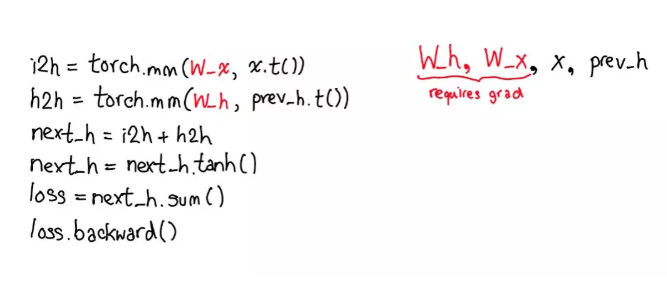 i2h = torch.mm(W_x, x.t())
h2h = torch.mm(W_h, prev_h.t())
next_h = i2h + h2h
next_h = next_h.tanh()
loss = next_h.sum()
loss.backward()
W_h, W_x, x, prev_h
requires grad